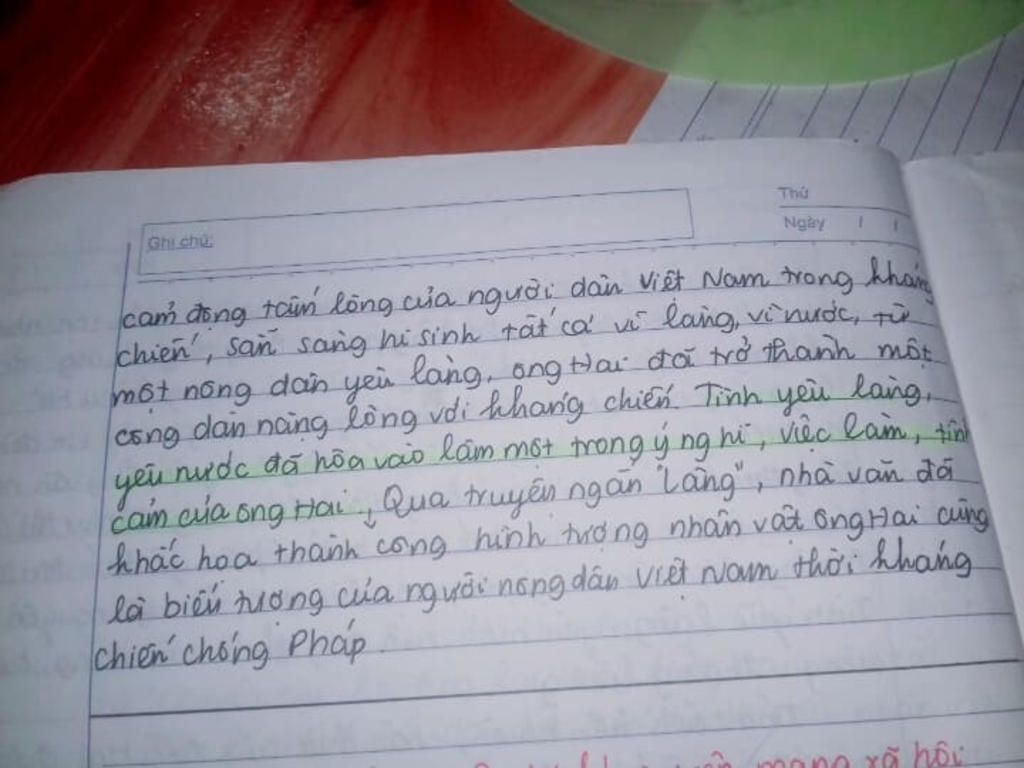 Thứ
Ghi chú:
Ngày / /
cảm động tấm lòng của người dân Việt Nam trong kháng
chiến, sẵn sàng hi sinh tất cả vì làng, vì nước, từ
một nông dân yêu làng, ông Hai đã trở thành một
công dân nặng lòng với kháng chiến. Tình yêu làng,
yêu nước đã hòa vào làm một trong ý nghĩ, việc làm, tình
cảm của ông Hai, Qua truyện ngắn "Làng", nhà văn đã
khắc họa thành công hình tượng nhân vật ông Hai cũng
là biểu tượng của người nông dân Việt Nam thời kháng
chiến chống Pháp.
mạng xã hội